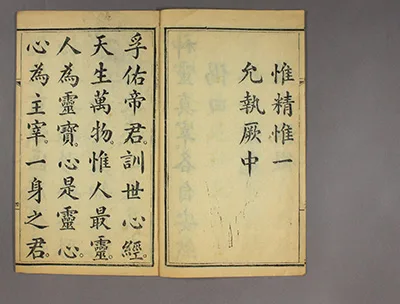 惟精惟一
允執厥中
孚佑帝君訓世心經。
天生萬物。惟人最靈。
人為靈寶。心是靈心。
心為主宰。一身之君。